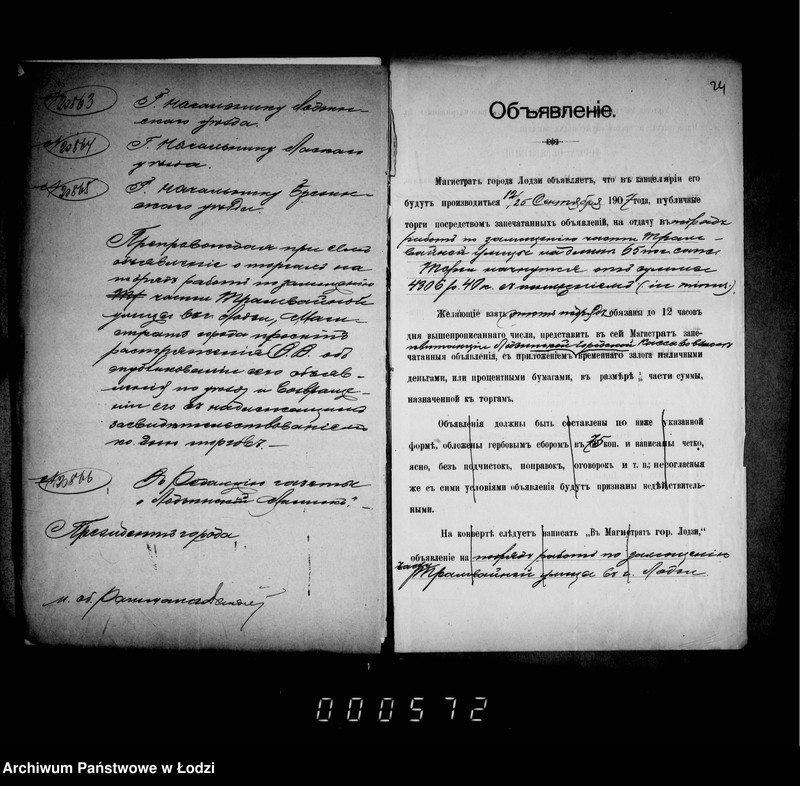 №20863
Г. Начальнику Лодзин-
скаго уѣзда.
№20864
Г. Начальнику Ласкаго
уѣзда.
№20865
Г. Начальнику Брезин-
скаго уѣзда.
Препровождая при семъ
объявленіе о торгахъ на
подрядъ работъ по замощенію
части Трамвайной
улицы въ г. Лодзи, Маги-
стратъ города проситъ
распоряженія В.В. объ
опубликованіи сего объяв-
ленія по уѣзду и возвраще-
ніи его съ надлежащимъ
засвидѣтельствованіемъ
ко дню торговъ.—
№20866
Въ Редакцію газеты
„Лодзинскій Листокъ".—
Президентъ города
24
Объявленіе.
Магистратъ города Лодзи объявляетъ, что въ канцеляріи его
будутъ производиться 12/25 Сентября 1907 года, публичные
торги посредствомъ запечатанныхъ объявленій, на отдачу въ подрядъ
работъ по замощенію части Трамвайной улицы на длинѣ 65 пог. саж.
Торги начнутся отъ суммы
4306 р. 40 к. съ пониженіемъ (in minus).
Желающіе взять этотъ подрядъ обязаны до 12 часовъ
дня вышепрописаннаго числа, представить въ сей Магистратъ запе-
чатанныя объявленія, съ приложеніемъ временнаго залога наличными
деньгами, или процентными бумагами, въ размѣрѣ 1/10 части суммы,
назначенной къ торгамъ.
Объявленія должны быть составлены по ниже указанной
формѣ, обложены гербовымъ сборомъ въ 75 коп. и написаны четко,
ясно, безъ подчистокъ, поправокъ, оговорокъ и т. п.; несогласныя
же съ сими условіями объявленія будутъ признаны недѣйствитель-
ными.
На конвертѣ слѣдуетъ написать „Въ Магистратъ гор. Лодзи,"
объявленіе на подрядъ работъ по замощенію
части Трамвайной улицы въ г. Лодзи
000572
Archiwum Państwowe w Łodzi